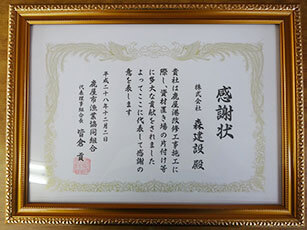 感謝状
株式会社
森建設 殿
貴社は鹿屋港改修工事施工に
際し、資材置き場の片付け等
に多大な貢献をされました
よってここに代表して感謝の
意を表します
平成二十八年十二月二日
鹿屋市漁業協同組合
代表理事組合長 皆倉 貢